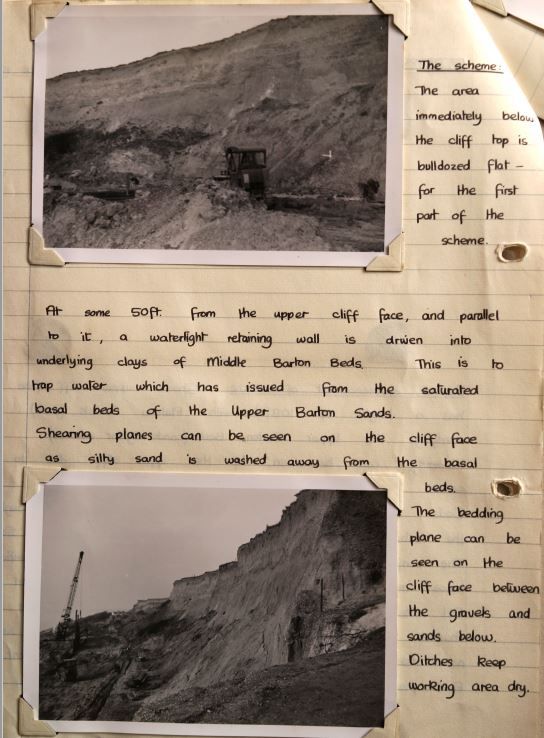 The scheme:
The area
immediately below
the cliff top is
bulldozed flat -
for the first
part of the
scheme.
At some 50ft. from the upper cliff face, and parallel
to it, a watertight retaining wall is driven into
underlying clays of Middle Barton Beds. This is to
trap water which has issued from the saturated
basal beds of the Upper Barton Sands.
Shearing planes can be seen on the cliff face
as silty sand is washed away from the basal
beds.
The bedding
plane can be
seen on the
cliff face between
the gravels and
sands below.
Ditches keep
working area dry.